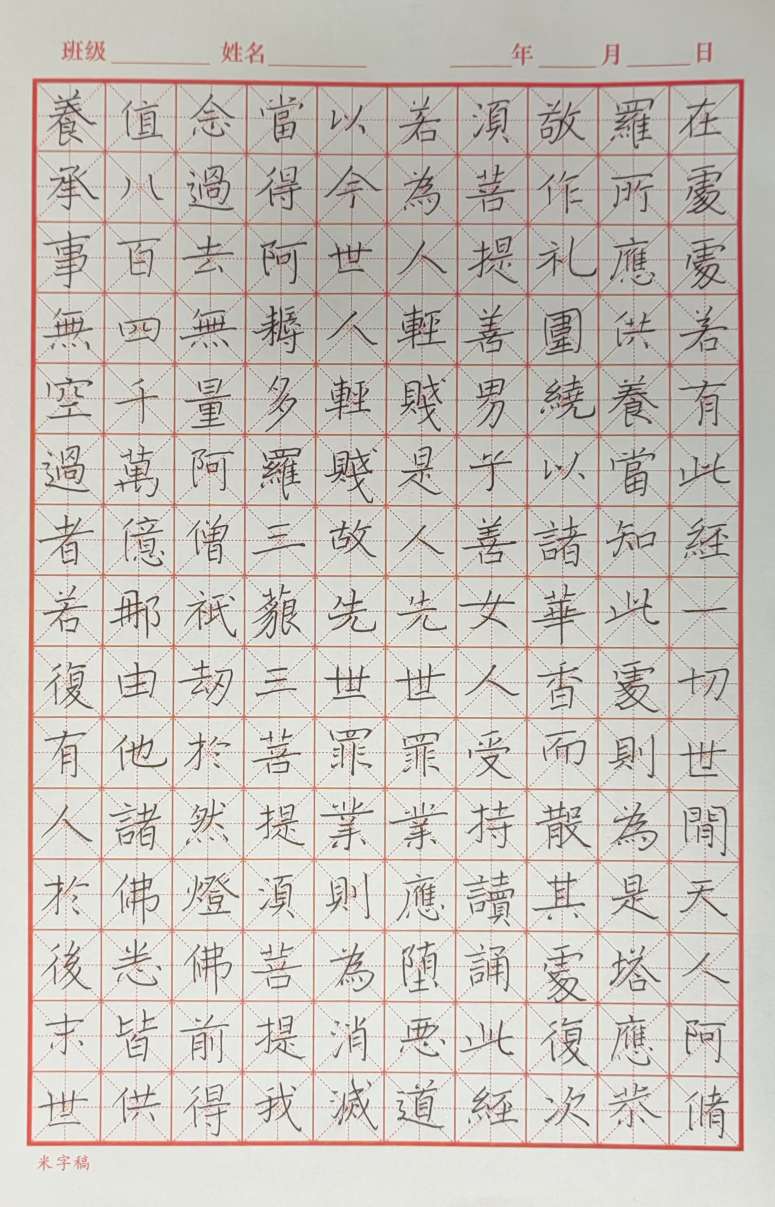 班级 姓名 年 月 日
在處處若有此經一切世間天人阿脩
羅所應供養當知此處則為是塔應恭
敬作礼圍繞以諸華香而散其處復次
須菩提善男子善女人受持讀誦此經
若為人輕賤是人先世罪業應墮惡道
以今世人輕賤故先世罪業則為消滅
當得阿耨多羅三藐三菩提須菩提我
念過去無量阿僧祇劫於然燈佛前得
值八百四千萬億那由他諸佛悉皆供
養承事無空過者若復有人於後末世
米字稿